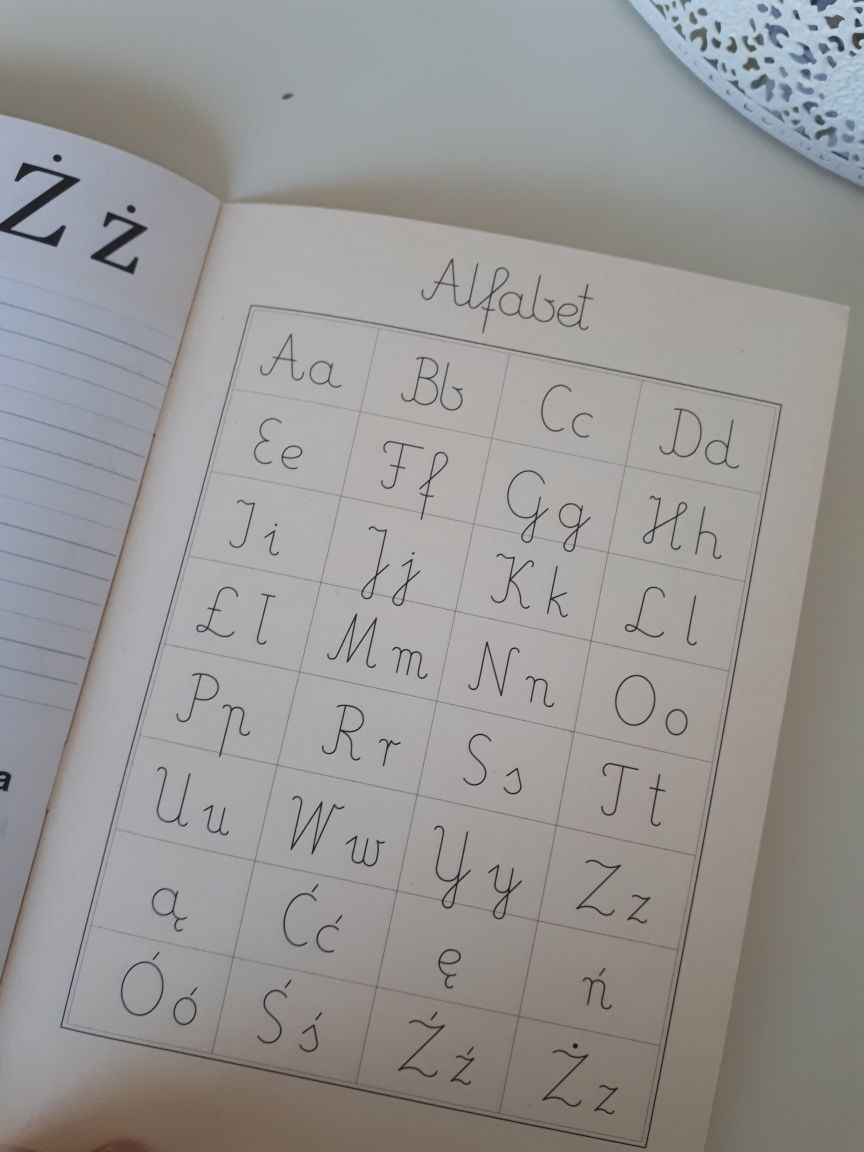 Ż ż
a
Alfabet
Aa Bb Cc Dd
Ee Ff Gg Hh
Ii Jj Kk Ll
Łł Mm Nn Oo
Pp Rr Ss Tt
Uu Ww Yy Zz
ą Ćć ę ń
Óó Śś Źź Żz